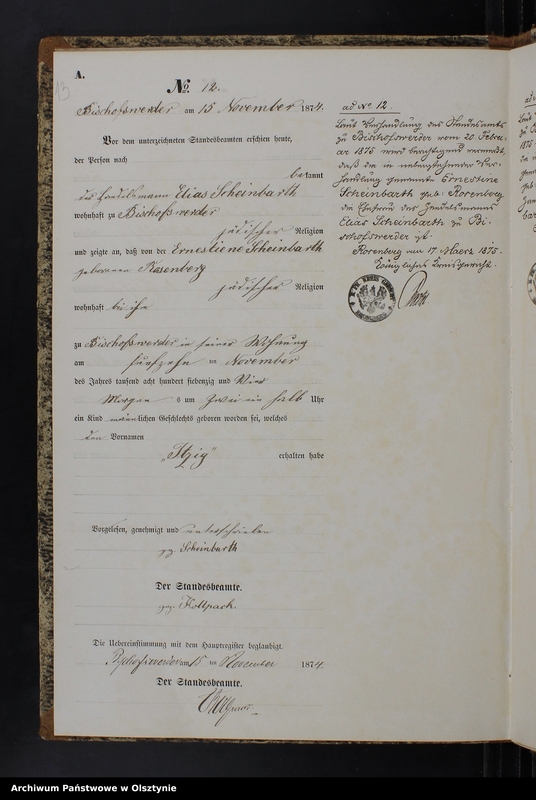 A.
13
No. 12.
Bischofswerder am 15 November 1874.
Vor dem unterzeichneten Standesbeamten erschien heute,
der Person nach
bekannt
der Handelsmann Elias Scheinbarth
wohnhaft zu Bischofswerder
jüdischer Religion
und zeigte an, daß von der Ernestiene Scheinbarth
geborenen Rosenberg
jüdischer Religion
wohnhaft bei ihm
zu Bischofswerder in seiner Wohnung
am fünfzehn ten November
des Jahres tausend acht hundert siebenzig und Vier
Morgen s um zwei ein halb Uhr
ein Kind männlichen Geschlechts geboren worden sei, welches
den Vornamen
„Itzig"
erhalten habe
Vorgelesen, genehmigt und unterschrieben
gez. Scheinbarth
Der Standesbeamte.
gez. Kollpack
Die Uebereinstimmung mit dem Hauptregister beglaubigt.
Bischofswerder am 15 ten November 1874.
Der Standesbeamte.
ad No 12
Laut Verhandlung des Standesamts
zu Bischofswerder vom 20 Febru-
ar 1875 wird berichtigend vermerkt,
daß die in nebenstehender Ver-
handlung genannte Ernestine
Scheinbarth geb. Rosenberg
die Ehefrau des Handelsmanns
Elias Scheinbarth zu Bi-
schofswerder ist.
Rosenberg am 17 Maerz 1875.
Königliches Kreisgericht.
Archiwum Państwowe w Olsztynie